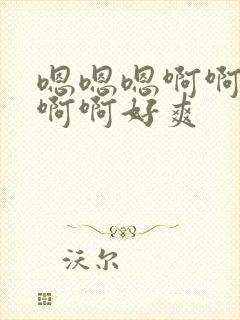 嗯嗯嗯啊啊
啊啊好爽
沃尔